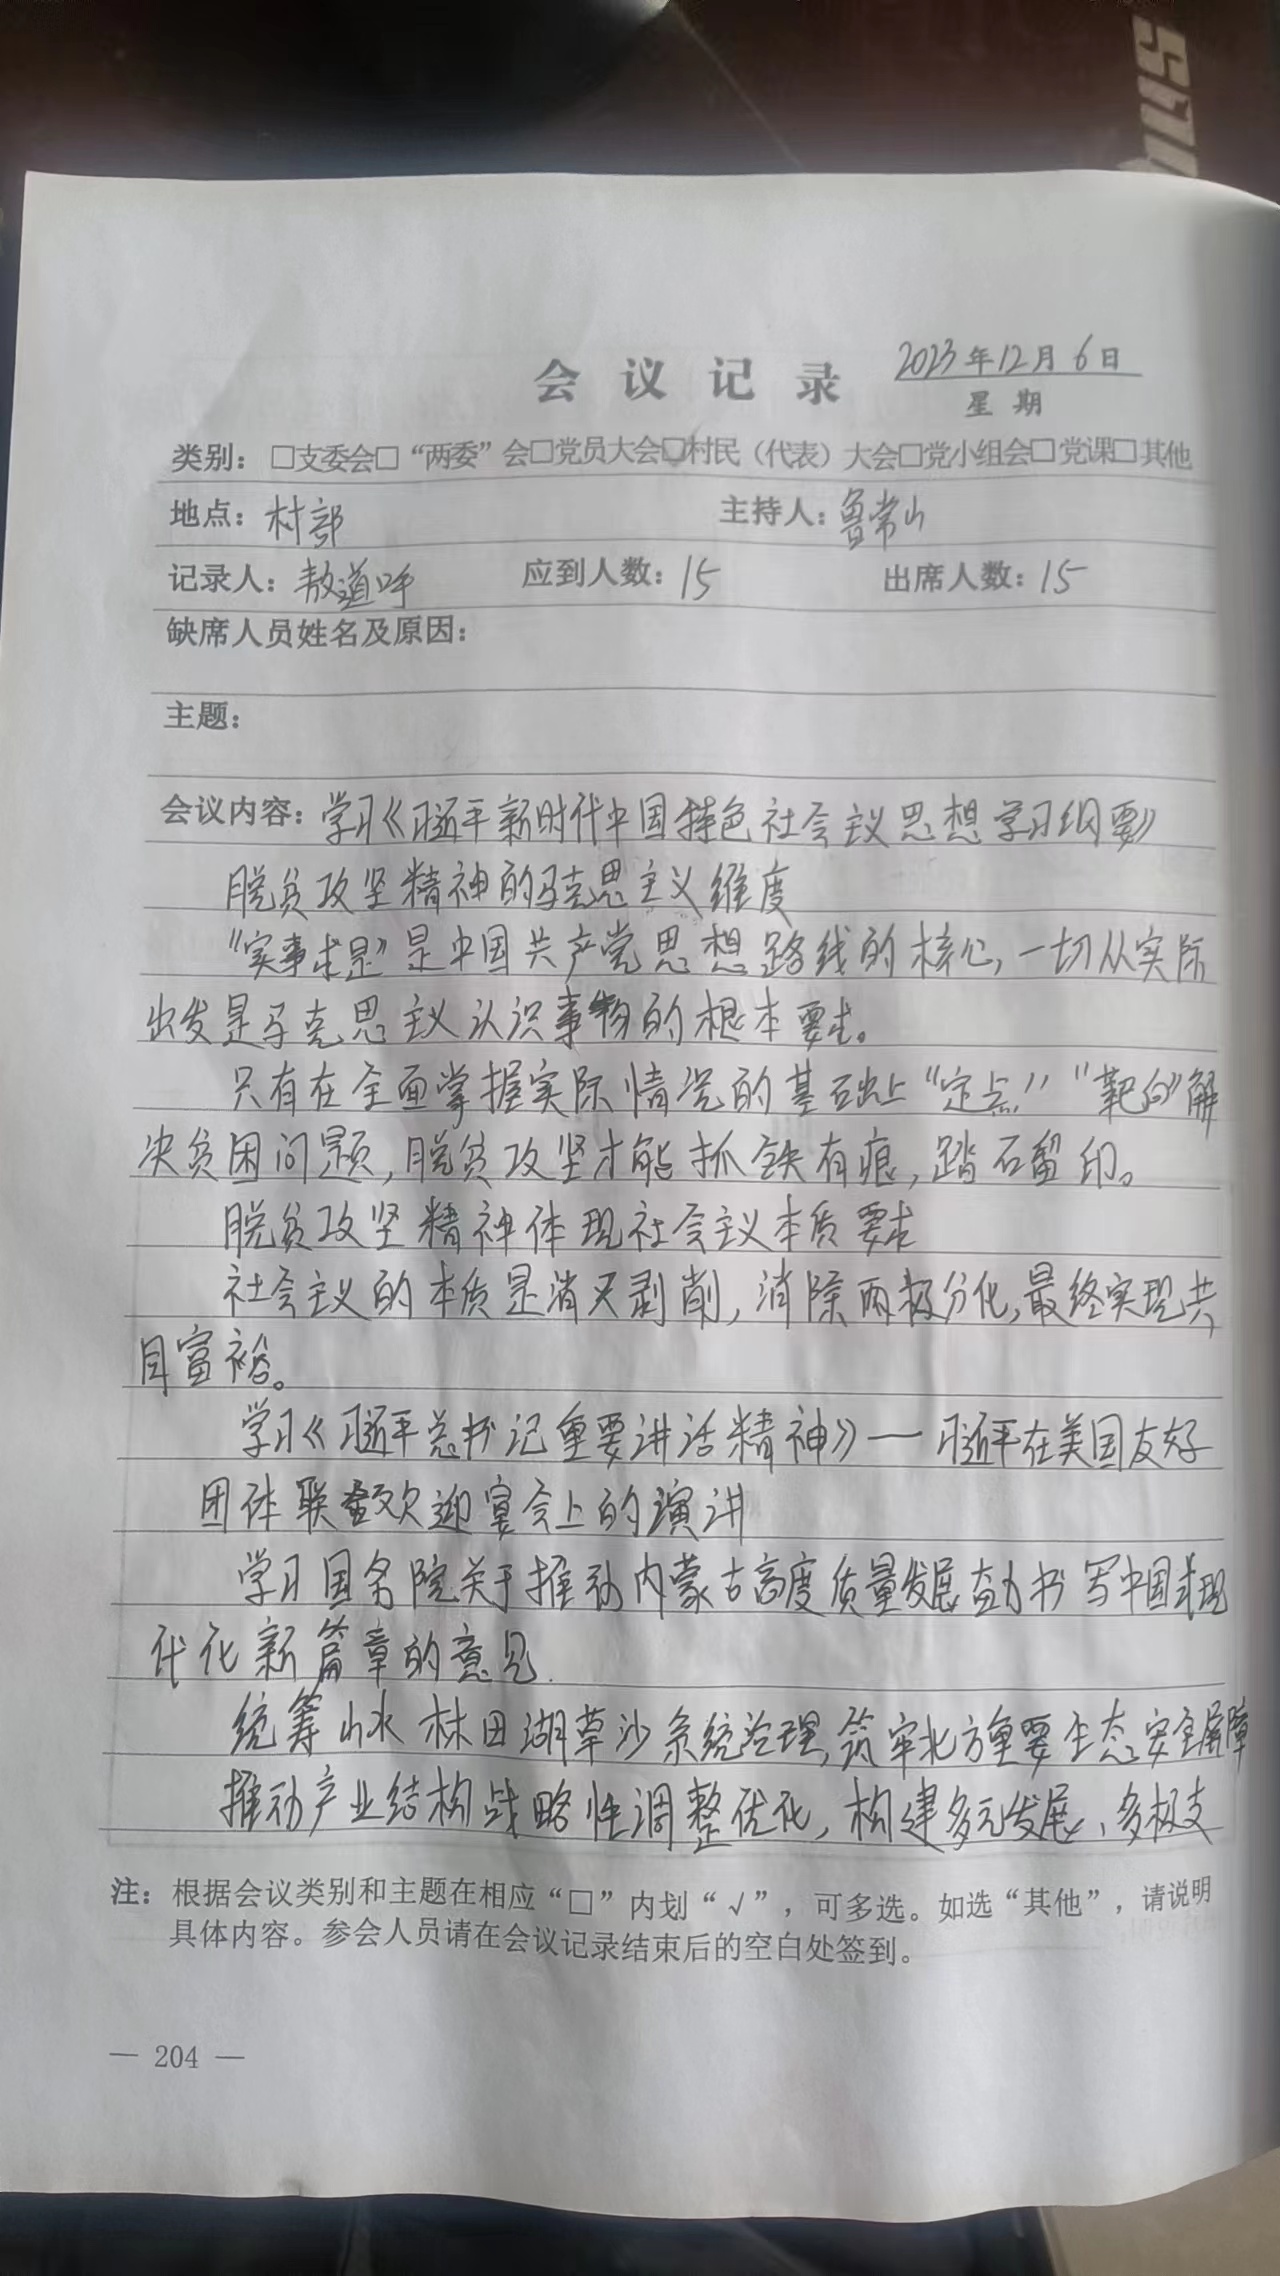 会议记录 2023年12月6日
星期
类别：□支委会□“两委”会□党员大会☑村民（代表）大会□党小组会□党课□其他
地点：村部 主持人：鲁常山
记录人：敖道呼 应到人数：15 出席人数：15
缺席人员姓名及原因：
主题：
会议内容：学习《习近平新时代中国特色社会主义思想学习纲要》
脱贫攻坚精神的马克思主义维度
“实事求是”是中国共产党思想路线的核心，一切从实际
出发是马克思主义认识事物的根本要求。
只有在全面掌握实际情况的基础上“定点”“靶向”解
决贫困问题，脱贫攻坚才能抓铁有痕，踏石留印。
脱贫攻坚精神体现社会主义本质要求
社会主义的本质是消灭剥削，消除两极分化，最终实现共
同富裕。
学习《习近平总书记重要讲话精神》—习近平在美国友好
团体联合欢迎宴会上的演讲
学习国务院关于推动内蒙古高度质量发展奋力书写中国式现
代化新篇章的意见.
统筹山水林田湖草沙系统治理，筑牢北方重要生态安全屏障
推动产业结构战略性调整优化，构建多元发展、多极支
注：根据会议类别和主题在相应“□”内划“√”，可多选。如选“其他”，请说明
具体内容。参会人员请在会议记录结束后的空白处签到。
— 204 —